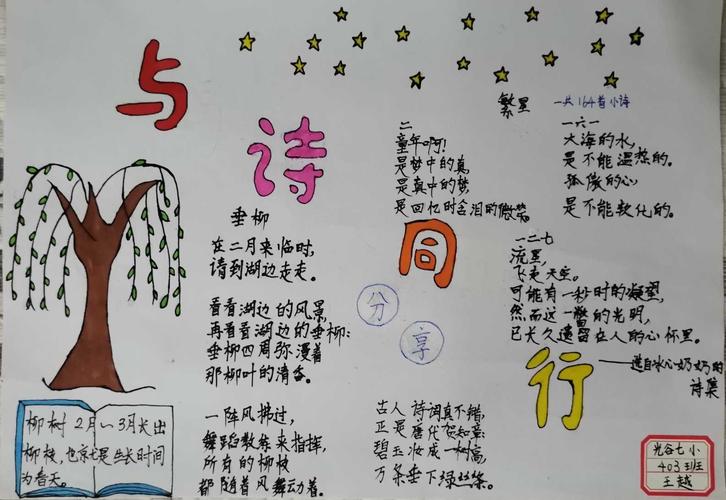 与诗同行
繁星 一共164首小诗
二
童年啊!
是梦中的真,
是真中的梦,
是回忆时含泪的微笑。
一六一
大海的水,
是不能温热的。
孤傲的心
是不能软化的。
一二七
流星,
飞走天空。
可能有一秒时的凝望,
然而这一瞥的光明,
已长久遗留在人的心怀里。
——选自冰心奶奶的
诗集
垂柳
在二月来临时,
请到湖边走走。
看看湖边的风景,
再看看湖边的垂柳:
垂柳四周弥漫着
那柳叶的清香。
一阵风拂过,
舞蹈教练来指挥,
所有的柳枝
都随着风舞动着。
分享
古人诗词真不错,
正是唐代贺知章:
碧玉妆成一树高,
万条垂下绿丝绦。
柳树2月~3月长出
柳枝,也就是生长时间
为春天。
光谷七小
403班
王越